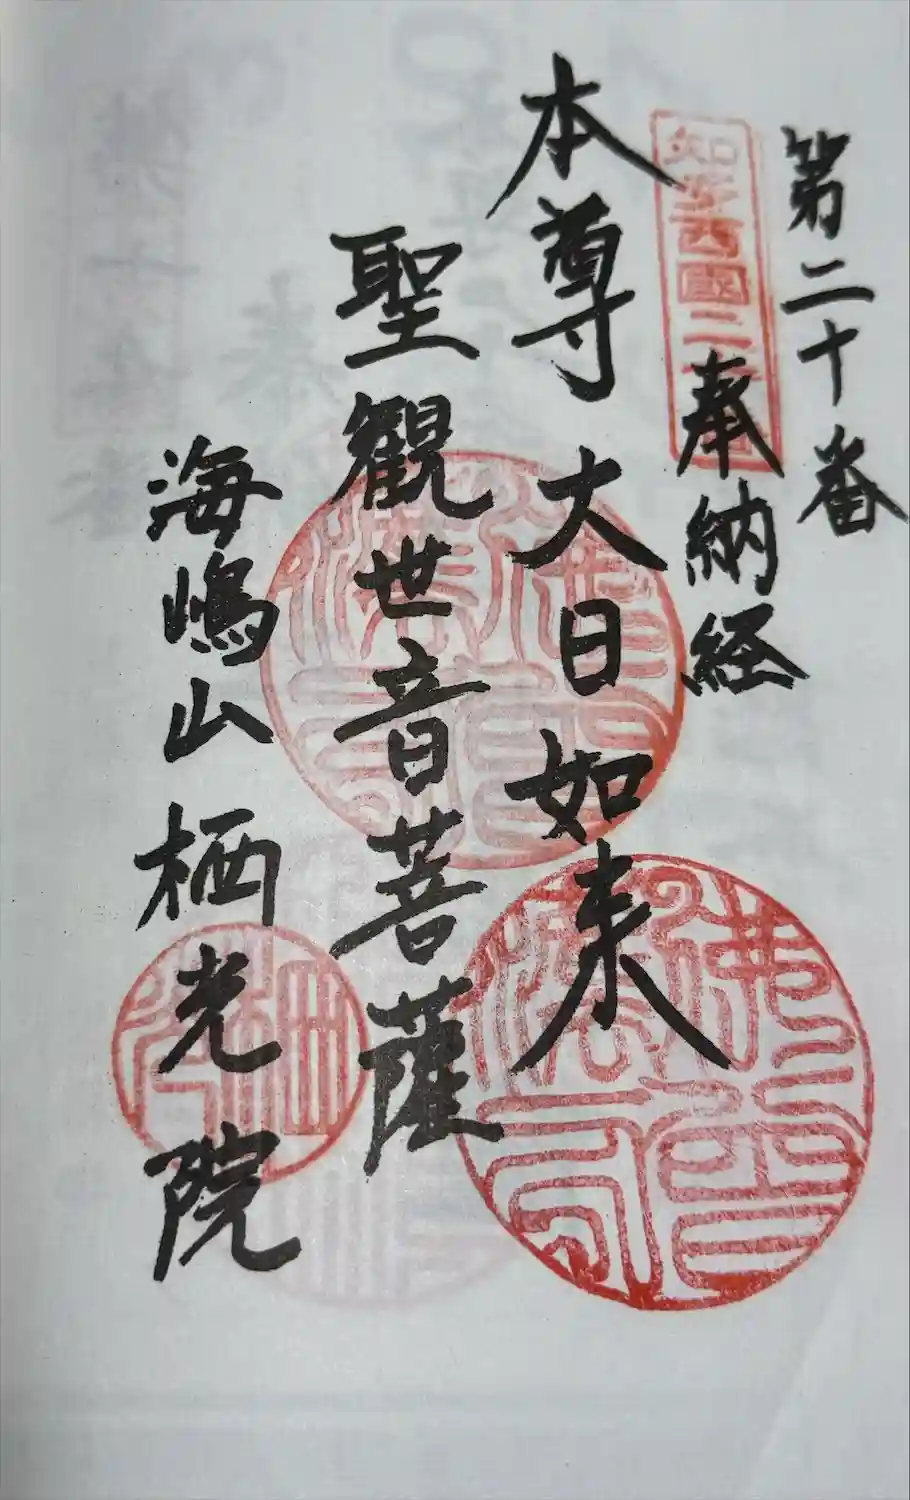 第二十番
奉納経
知多西國二十番
本尊 大日如来
聖観世音菩薩
海嶋山 栖光院